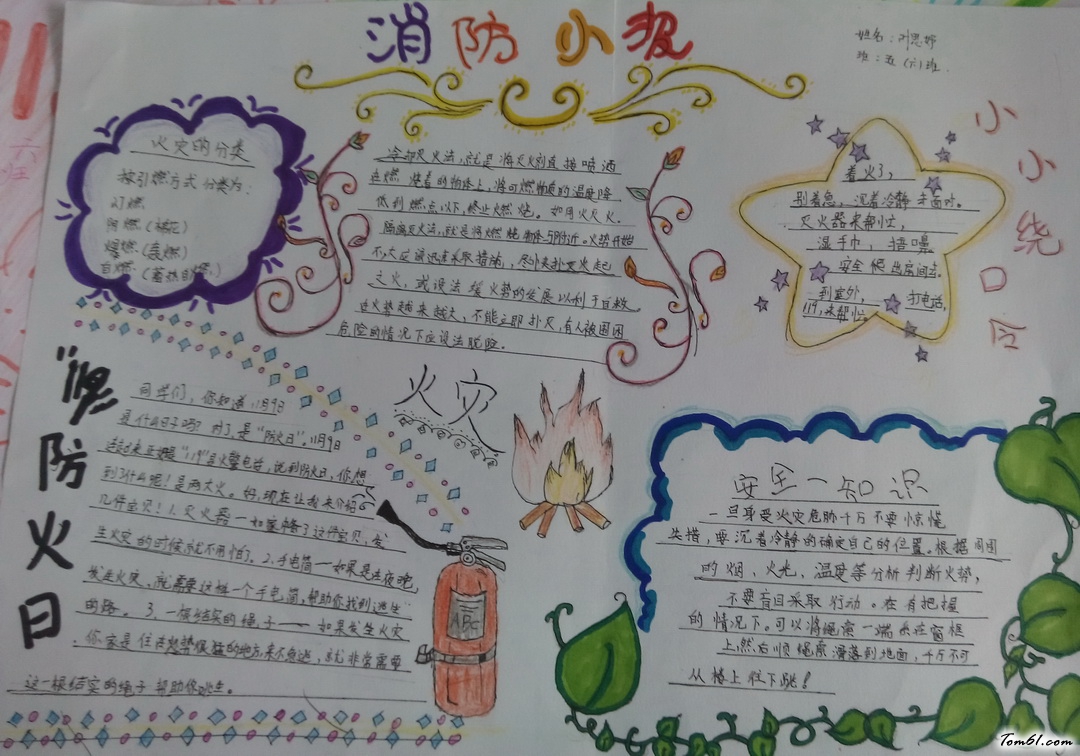 消防小报
姓名：叶思婷
班：五（六）班
火灾的分类
按引燃方式分类为：
闪燃
自燃（蓄热自燃）
冷却灭火法，就是将灭火剂直接喷洒
在燃烧着的物体上，将可燃物质的温度降
低到燃点以下，终止火燃烧。如用火灭火。
隔离灭火法，就是将燃烧物体与附近。火势开始
不大应该迅速采取措施，尽快扑灭火起
之火，或设法缓火势的发展以利于自救。
在火势越来越大，不能立即扑灭，有人被围困
危险的情况下应设法脱险。
小小绕口令
着火了，
别着急，沉着冷静去面对。
灭火器来帮忙，
湿手巾，捂嘴鼻
安全使出房间去。
到室外，打电话，
119，来帮忙。
火灾
防火日
同学们，你知道11月9日
是什么日子吗？对了，是“防火日”。11月9日
连起来正好是“119”号火警电话，说到防火日，你想
到了什么呢！是两大火。好，现在让我来介绍
几件宝贝！1.灭火器——如果带了这件宝贝，发
生火灾的时候就不用怕了。2.手电筒——如果是在夜晚，
发生火灾、就需要这样一个手电筒，帮助你找到逃生
的路。3.一根结实的绳子——如果发生火灾
你家是住在
的地方，来不急逃，就非常需要
这一根结实的绳子帮助你逃生。
ABC
安全一知识
一旦身受火灾危胁千万不要惊慌
失措，要沉着冷静的确定自己的位置。根据周围
的烟、火光、温度等分析判断火势，
不要盲目采取行动。在有把握
的情况下。可以将绳索一端系在窗框
上，然后顺绳索滑落到地面，千万不可
从楼上往下跳！
Tom61.com